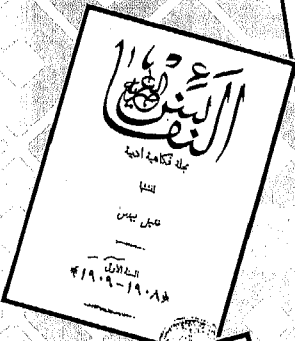 النفائس العصرية
مجلة فكاهية أدبية
لمنشئها
خليل بيدس
السنة الأولى
*١٩٠٨-١٩٠٩*